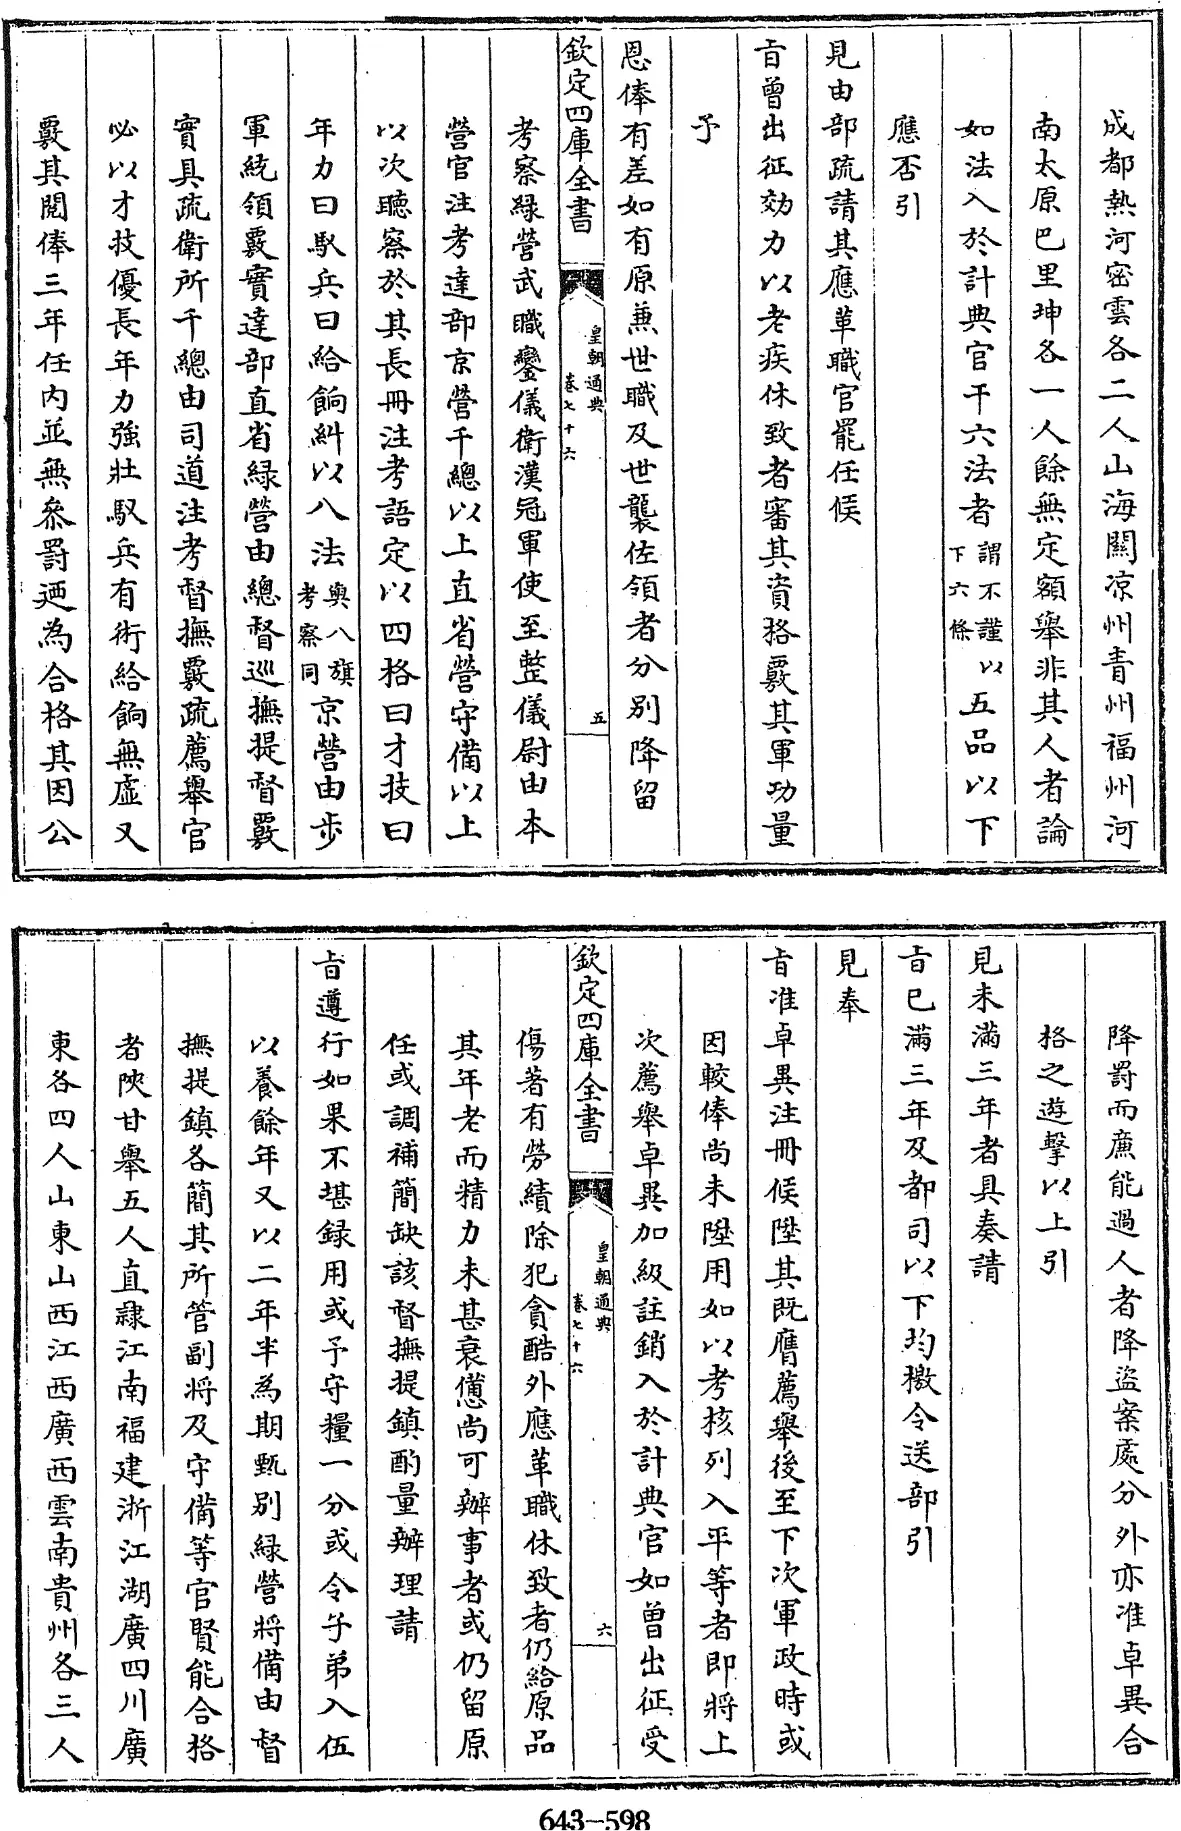 成都熱河密雲各二人山海關凉州青州福州河
南太原巴里坤各一人餘無定額舉非其人者論
如法入於計典官干六法者謂不謹以下六條五品以下
應否引
見由部疏請其應革職官罷任候
旨曾出征効力以老疾休致者審其資格覈其軍功量
予
恩俸有差如有原兼世職及世襲佐領者分别降留
欽定四庫全書
皇朝通典
卷七十六
五
考察緑營武職鑾儀衛漢冠軍使至整儀尉由本
營官注考達部京營千總以上直省營守備以上
以次聽察於其長冊注考語定以四格曰才技曰
年力曰馭兵曰給餉糾以八法與八旗考察同京營由步
軍統領覈實達部直省緑營由總督巡撫提督覈
實具疏衛所千總由司道注考督撫覈疏薦舉官
必以才技優長年力強壯馭兵有術給餉無虛又
覈其閱俸三年任内並無叅罰廼為合格其因公
降罰而廉能過人者降盜案處分外亦准卓異合
格之遊擊以上引
見未滿三年者具奏請
旨已滿三年及都司以下均檄令送部引
見奉
旨准卓異注冊候陞其既膺薦舉後至下次軍政時或
因較俸尚未陞用如以考核列入平等者即將上
次薦舉卓異加級註銷入於計典官如曾出征受
欽定四庫全書
皇朝通典
卷七十六
六
傷著有勞績除犯貪酷外應革職休致者仍給原品
其年老而精力未甚衰憊尚可辦事者或仍留原
任或調補簡缺該督撫提鎮酌量辦理請
旨遵行如果不堪録用或予守糧一分或令子弟入伍
以養餘年又以二年半為期甄别緑營將備由督
撫提鎮各簡其所管副將及守備等官賢能合格
者陜甘舉五人直隸江南福建浙江湖廣四川廣
東各四人山東山西江西廣西雲南貴州各三人
643-598